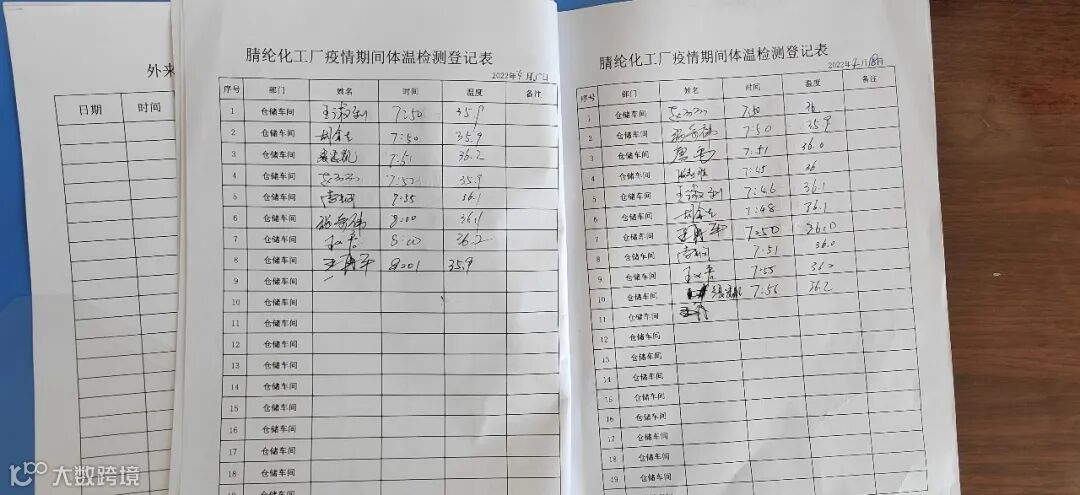 外来
日期 时间
腈纶化工厂疫情期间体温检测登记表
2022年4月
序号 部门 姓名 时间 温度 备注
1 仓储车间 王淑利 7:50 35.9
2 仓储车间 7:50 35.9
3 仓储车间 7:51 36.2
4 仓储车间 7:52 35.9
5 仓储车间 7:55 36.1
6 仓储车间 8:00 36.1
7 仓储车间 8:00 36.2
8 仓储车间 8:01 35.9
9 仓储车间
10 仓储车间
11 仓储车间
12 仓储车间
13 仓储车间
14 仓储车间
15 仓储车间
16 仓储车间
17 仓储车间
18 仓储车间
腈纶化工厂疫情期间体温检测登记表
2022年4月18日
序号 部门 姓名 时间 温度 备注
1 仓储车间 7:50 36
2 仓储车间 7:50 35.9
3 仓储车间 7:51 36.0
4 仓储车间 7:45 36
5 仓储车间 王淑利 7:46 36.1
6 仓储车间 7:48 36.1
7 仓储车间 7:50 36.0
8 仓储车间 7:51 36.0
9 仓储车间 7:55
10 仓储车间 7:56 36.2
11 仓储车间
12 仓储车间
13 仓储车间
14 仓储车间
15 仓储车间
16 仓储车间
17 仓储车间
18 仓储车间
19 仓储车间
大数跨境